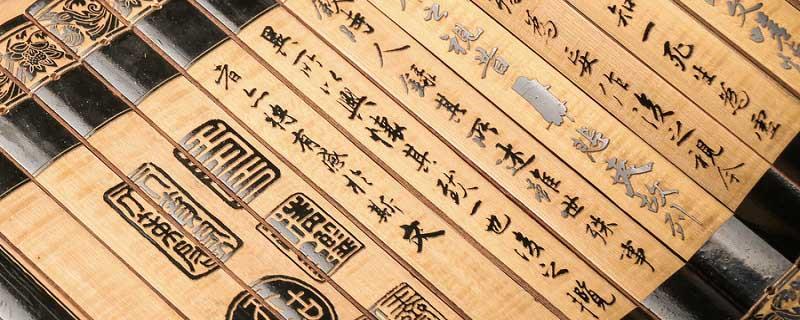 文嗟
知一死生為虛
為妄作後之視今
之視昔悲夫故列
敘時人錄其所述雖世殊事
異所以興懷其致一也後之攬
者亦將有感於斯文